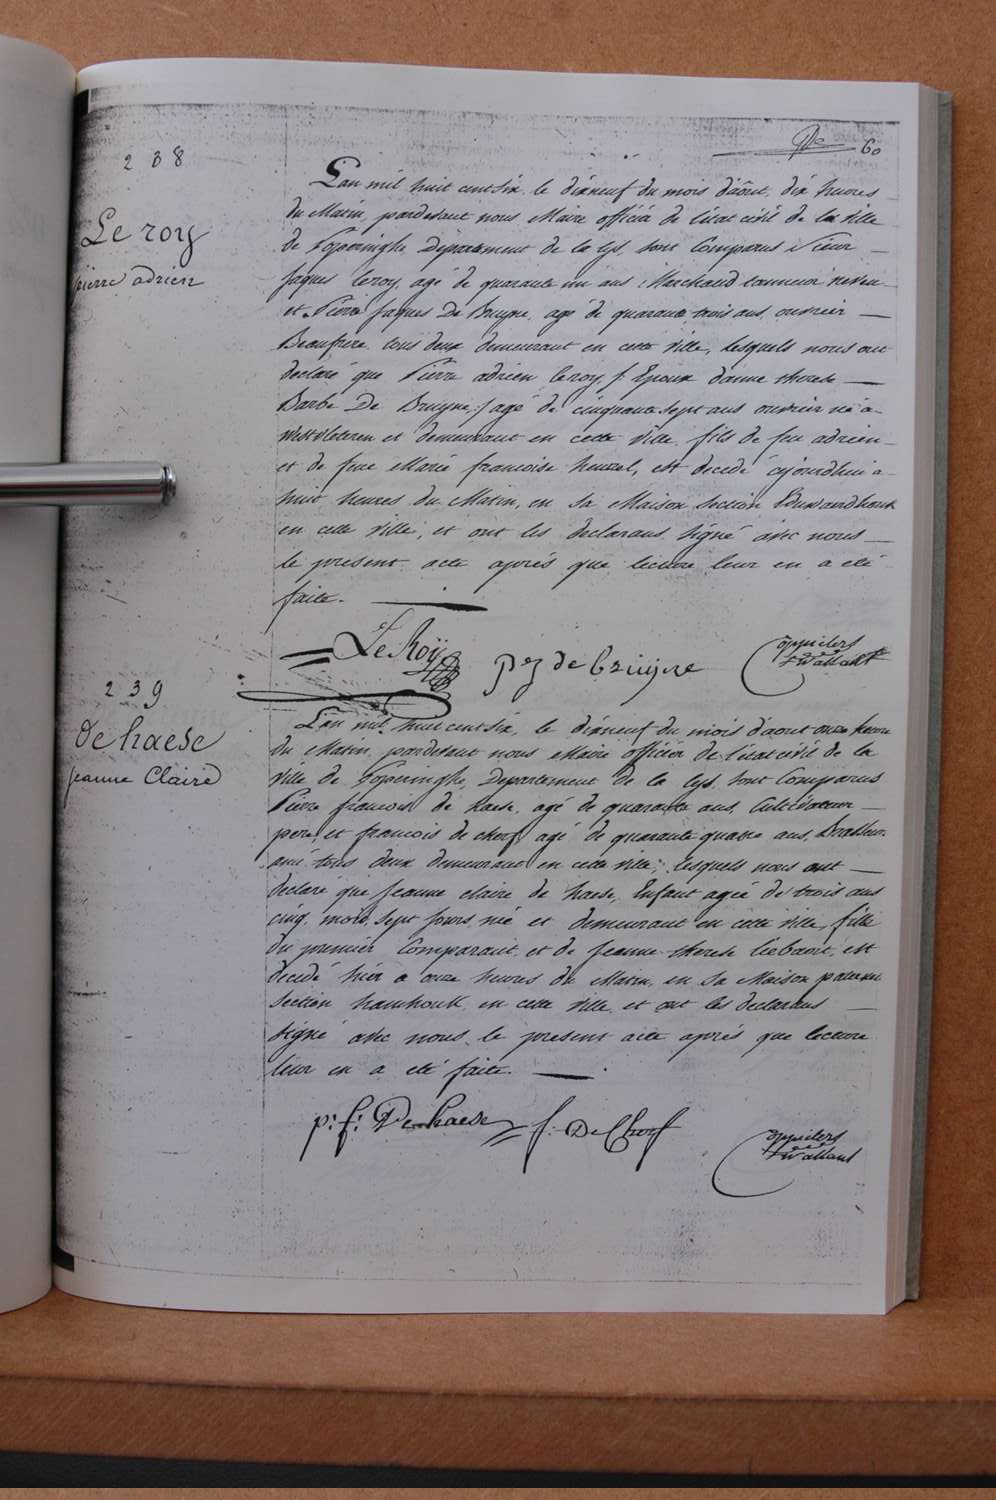 60
238
Le roy
pierre adrien
L'an mil huit cent six, le dixneuf du mois d'août, dix heures
du Matin, pardevant nous Maire officier de l'état civil de la ville
de Poperinghe, Département de la Lys, sont Comparus Pierre
Jaques Leroy, agé de quarante un ans, Marchand tanneur neveu
et Pierre Jaques De Bruyne, agé de quarante trois ans, ouvrier
Beaufrere, tous deux demeurant en cette ville, lesquels nous ont
declaré que Pierre adrien Leroy, /: Epoux d'anne therese
Barbe De Bruyne :/ agé de cinquante sept ans ouvrier né a
Westvleteren et demeurant en cette ville, fils de feu adrien
et de feue Marie francoise, est decedé cejourdhui a
huit heures du Matin, en sa Maison section
en cette ville, et ont les declarans signé avec nous
le present acte aprés que lecture leur en a eté
faite.
LeRoÿ pr j de bruyne
239
de haese
jeanne Claire
L'an mil huit cent six, le dixneuf du mois d'aout onze heures
du Matin, pardevant nous Maire officier de l'état civil de la
ville de Poperinghe, Departement de la Lys, sont Comparus
Pierre francois de haese, agé de quarante ans, Cultivateur
pere et francois de cherf, agé de quarante quatre ans, Brasseur
ami tous deux demeurant en cette ville, lesquels nous ont
declaré que Jeanne claire de haese, Enfant agée de trois ans
cinq mois, sept jours, née et demeurant en cette ville, fille
du premier Comparant, et de Jeanne therese liebaert, est
decedé hier a onze heures du Matin, en sa Maison paternelle
section hamhouk, en cette ville, et ont les declarans
signé avec nous le present acte aprés que lecture
leur en a eté faite.
p: f: De haese f: De Cherf